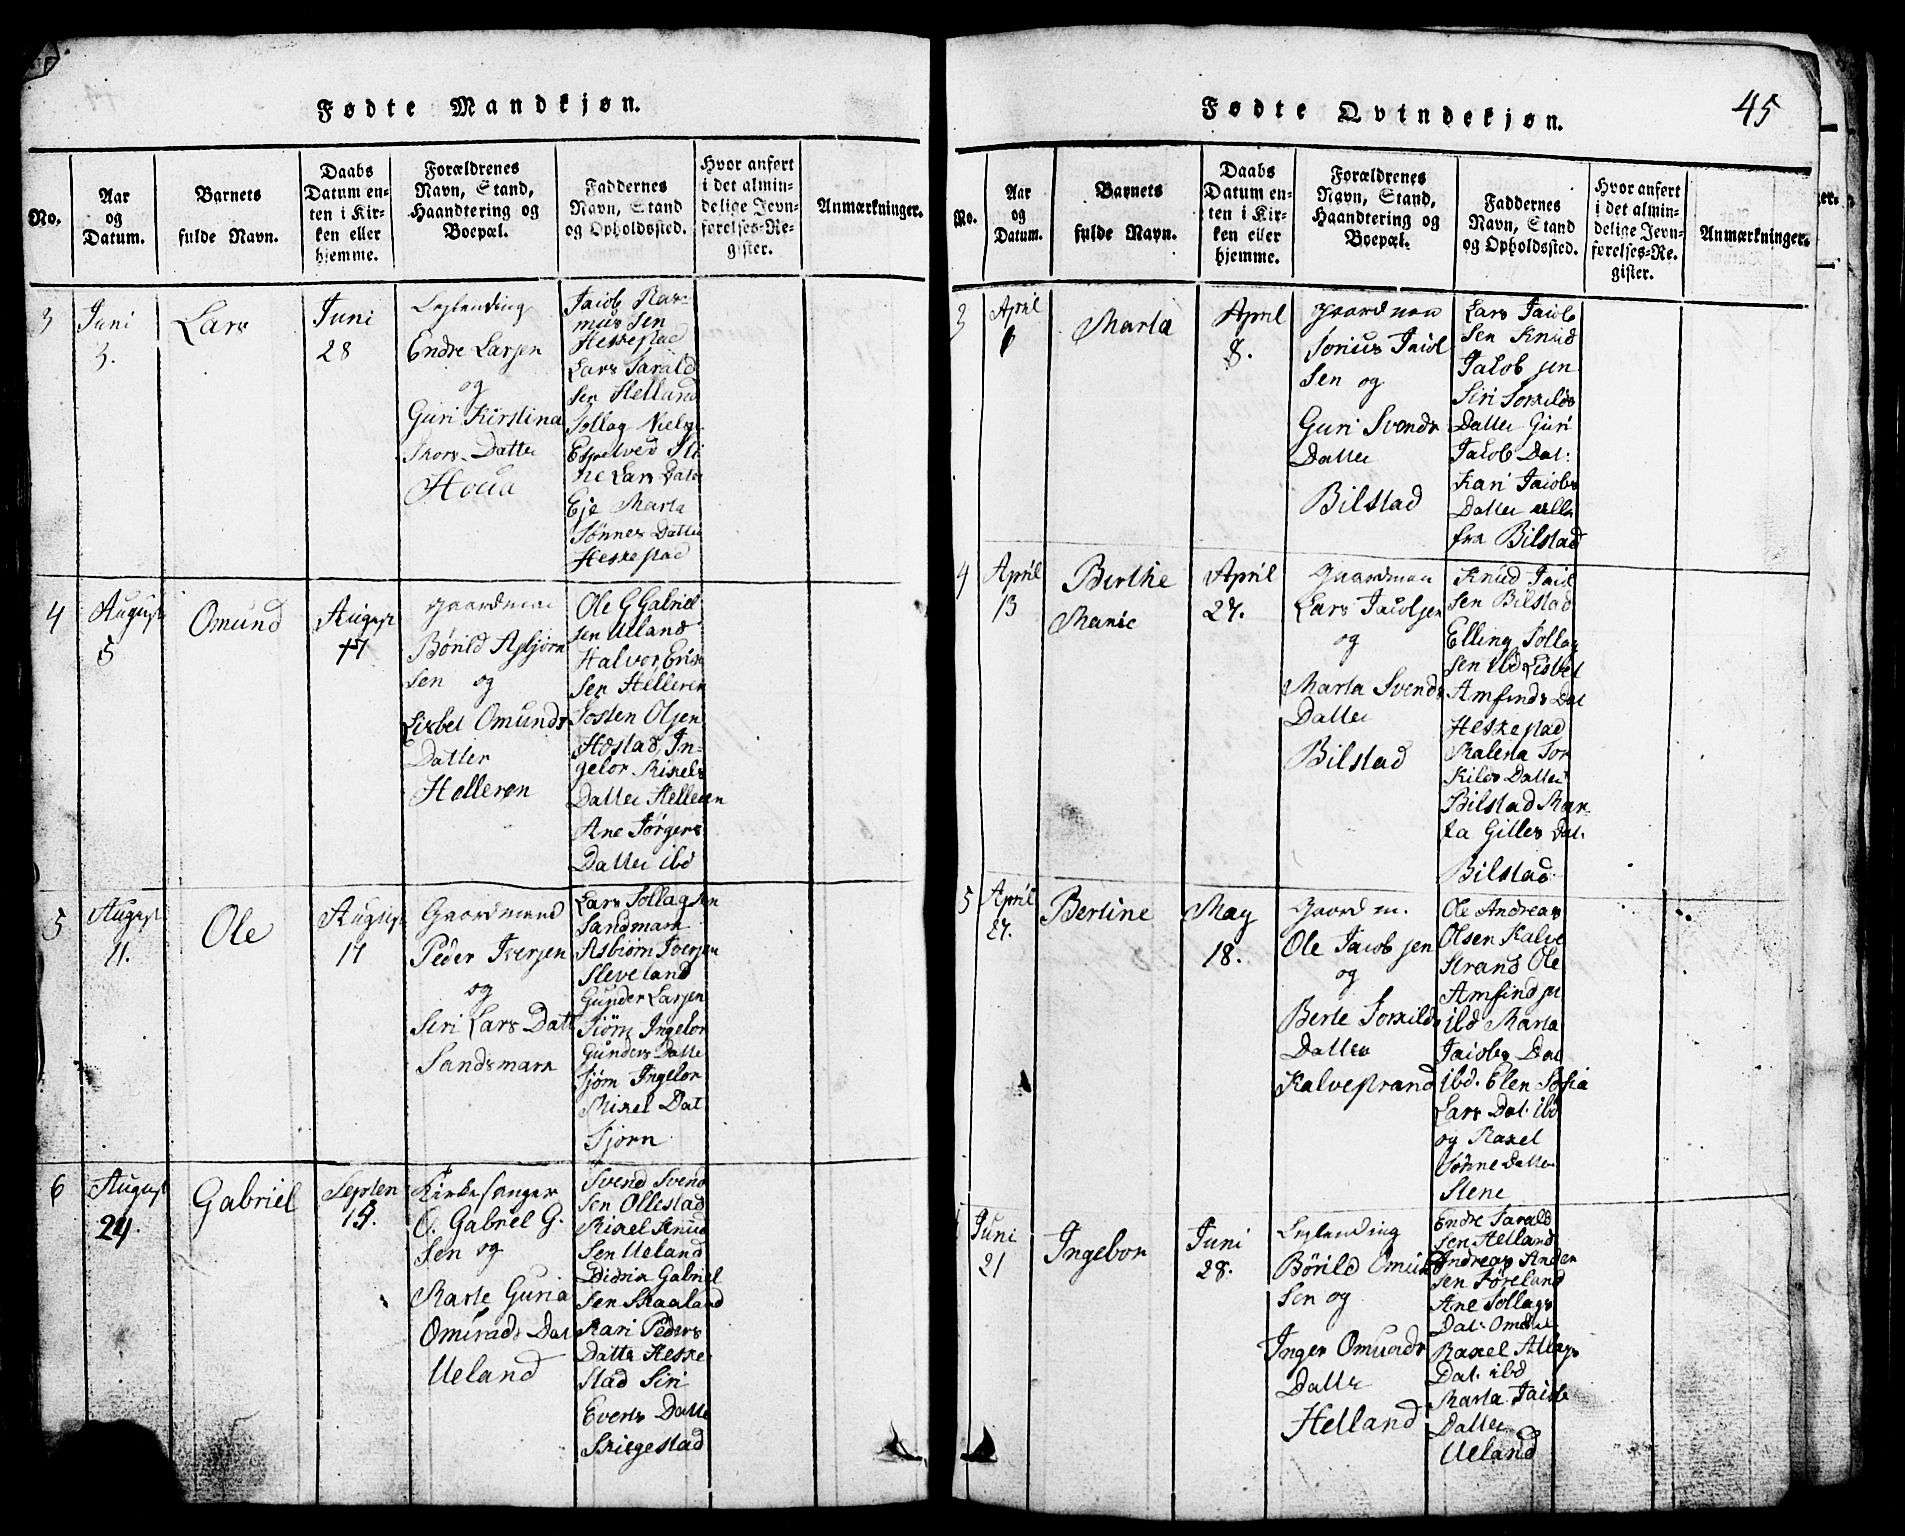 Fødte Mandkjøn.
No.
Aar
og
Datum.
Barnets
fulde Navn.
Daabs
Datum en-
ten i Kir-
ken eller
hjemme.
Forældrenes
Navn, Stand,
Haandtering og
Boepæl.
Faddernes
Navn, Stand
og Opholdssted.
Hvor anført
i det almin-
delige Jevn-
førelses-Re-
gister.
Anmærkninger.
3
Juni
3.
Lars
Juni
28
Leylending
Endre Larsen
og
Guri Kirstina
Thors Datter
Houa
Jacob Ras-
mus Sen
Heskestad
Lars Tarald
Sen Helland
Tollag Niels
Espetved
ne Lars Dater
Eje Marta
Tønnes Datter
Heskestad
4
August
5
Omund
August
17
gaardman
Børild Asbjørn
Sen og
Lisbet Omunds
Datter
Helleren
Ole G Gabriel
sen Ueland
Halvor Erik
Sen Helleren
Tosten Olsen
Hostad In-
gebor Mikels
Datter Helleren
Ane Jørgens
Datter ibd
5
August
11.
Ole
August
14
Gaardmand
Peder Iversen
og
Siri Lars Datt
Sandsmark
Lars Tollagsen
Sandsmark
Asbiørn Iversen
Sleveland
Gunder Larsen
Tiørn Ingebor
Gunders Datte
Tjørn Ingebor
Mikel Dat
Tjørn
6
August
24.
Gabriel
Septen
15.
Kirkesanger
O. Gabriel G.
Sen og
Marte Guria
Omunds Dat
Ueland
Svend Svend
Sen Ollestad
Mikel Knud
Sen Ueland
Didrik Gabriel
Sen Skaaland
Kari Peders
Datte Heske-
stad Siri
Everts Datte
Skiegestad
Fødte Qvindekjøn.
45
No.
Aar
og
Datum.
Barnets
fulde Navn.
Daabs
Datum en-
ten i Kir-
ken eller
hjemme.
Forældrenes
Navn, Stand,
Haandtering og
Boepæl.
Faddernes
Navn, Stand
og Opholdssted.
Hvor anført
i det almin-
delige Jevn-
førelses-Re-
gister.
Anmærkninger.
3
April
Marta
April
8.
gaardman
Jonas Jacob
Sen og
Guri Svends
Datter
Bilstad
Lars Jacob
Sen Knud
Jacob sen
Siri Torkilds
Datter Guri
Jacob Dat:
Kari Jacobs
Datter alle
fra Bilstad
4
April
13
Berthe
Marie
April
27.
gaardman
Lars Jacobsen
og
Marta Svends
Datter
Bilstad
Knud Jacob
Sen Bilstad
Elling Tollag
Sen ibd Lisbet
Amfinds Dat
Heskestad
Malena Tor
Kilds Datter
Bilstad Mar
ta Gilles Dat.
Bilstad
5
April
27.
Bertine
May
18.
Gaard m.
Ole Jacob sen
og
Berte Torkilds
Datter
Kalvestrand
Ole Andreas
Olsen Kalve
strand Ole
Amfind sen
ibd Marta
Jacobs Dat
ibd. Elen Sofia
Lars Dat. ibd
og Rakel
Tønne Datter
Stene
Juni
21
Ingebor
Juni
28.
Leylending
Børild Omund
Sen og
Inger Omunds
Datte
Helland
Endre Tarald
sen Helland
Andreas Anden
Sen Tøreland
Ane Tollags
Dat.
Rakel Atlags
Dat. ibd
Marta Jacobs
Datter
Ueland